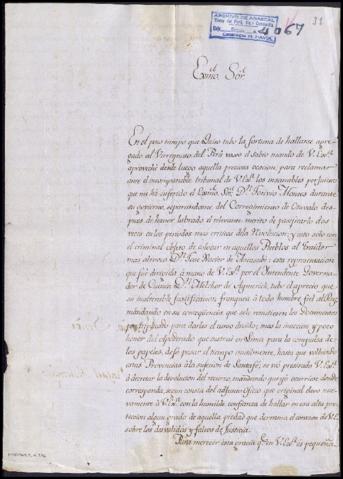 ARCHIVO DE ABASCAL
4067
31
Exmo. Sor.
En el poco tiempo que Quito tubo la fortuna de hallarse agre-
gado al Virreynato del Perú vaxo el sabio mando de V. Exa.
aproveché desde luego aquella preciosa ocacion, para reclamar
ante el incomparable tribunal de V. Exa. los innumerables perjuicios
que me há inferido el Exmo. Sor. Dn. Toribio Montes durante
su govierno, separandome del Corregimiento de Otavalo des-
pues de haver labrado el relevante merito de pacificarlo dos
veces en los periodos mas criticos de la Revolucion; y esto solo con
el criminal objeto de colocar en aquellos Pueblos al traidor
mas alevoso Dn. José Rector de esta representacion
que fué dirivida á mano de V. Exa. por el Intendente Governa-
dor de Cuenca Dn. Melchor de Aymerich, tubo el aprecio, que
su inalterable justificacion franquea á todo hombre fiel al Rey
mandando en su conseqüencia que se le remitiesen los Documentos
para darles el curso devido; mas la inaccion y poco
honor del Apoderado que instruí en Lima para la compulsa de
los papeles, dejó pasar el tiempo inutilmente, hasta que volviendo
estas Provincias á la sugecion de Santafé; se vió precisado V. Exa.
á decretar la devolucion del recurso mandando que yo ocurriese donde
corresponda, segun consta del adjunto Oficio que original elevo nue-
vamente á V. Exa. con la humilde confianza de hallar en su alta pro-
teccion algun grado de aquella piedad que derrama el corazon de V. Ex.
sobre los desvalidos y faltos de Justicia.
Para merecer esta gracia qe. en V. Exa. es pequeña,